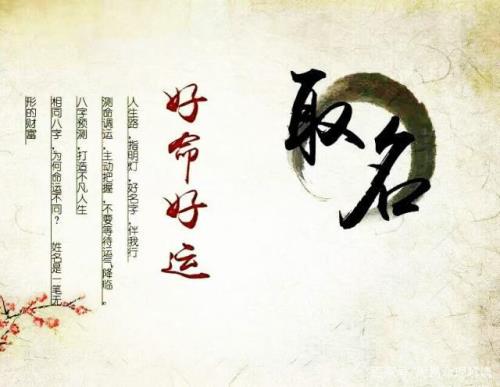 取名
好命好运
人生路,指明灯,好名字,伴我行
测命调运,主动把握,不要等待运气降临。
八字预测,打造不凡人生
相同八字,为何命运不同? 姓名是一笔无
形的财富